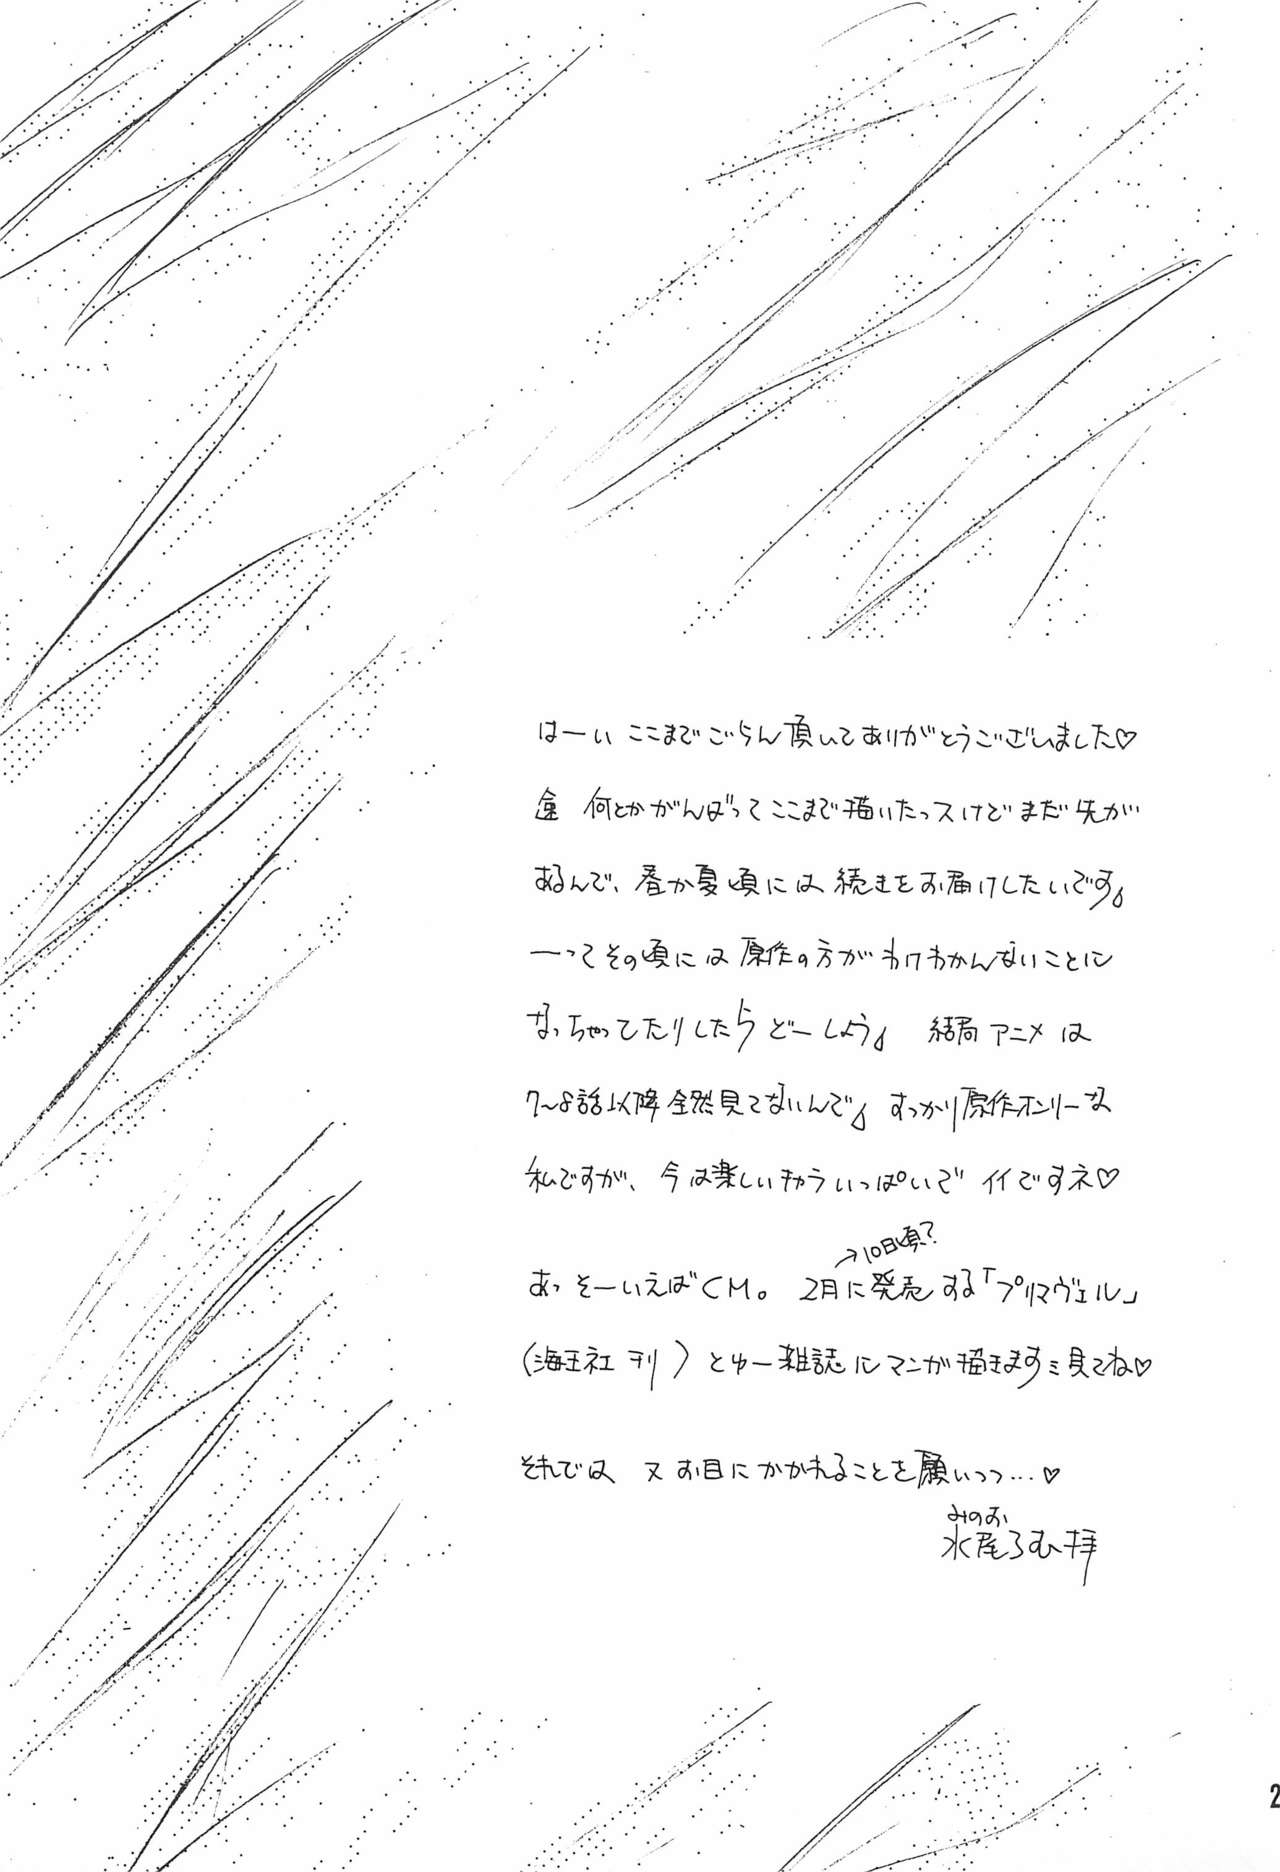 はーい ここまでごらん頂いてありがとうございました♡
何とかがんばってここまで描いたっスけどまだ先が
あるんで、春か夏頃には続きをお届けしたいです。
ーってその頃には原作の方がわけわかんないことに
なっちゃってたりしたらどーしよう。 結局アニメは
7〜8話以降全然見てないんで。すっかり原作オンリーな
私ですが、今は楽しいキャラいっぱいでイイですネ♡
→10日頃?
あっそーいえばCM。 2月に発売する「プリマヴェル」
(海王社刊)とゆー雑誌にマンガ描きます 見てね♡
それでは 又お目にかかれることを願いつつ…♡
みのお
水尾ろむ拝
2